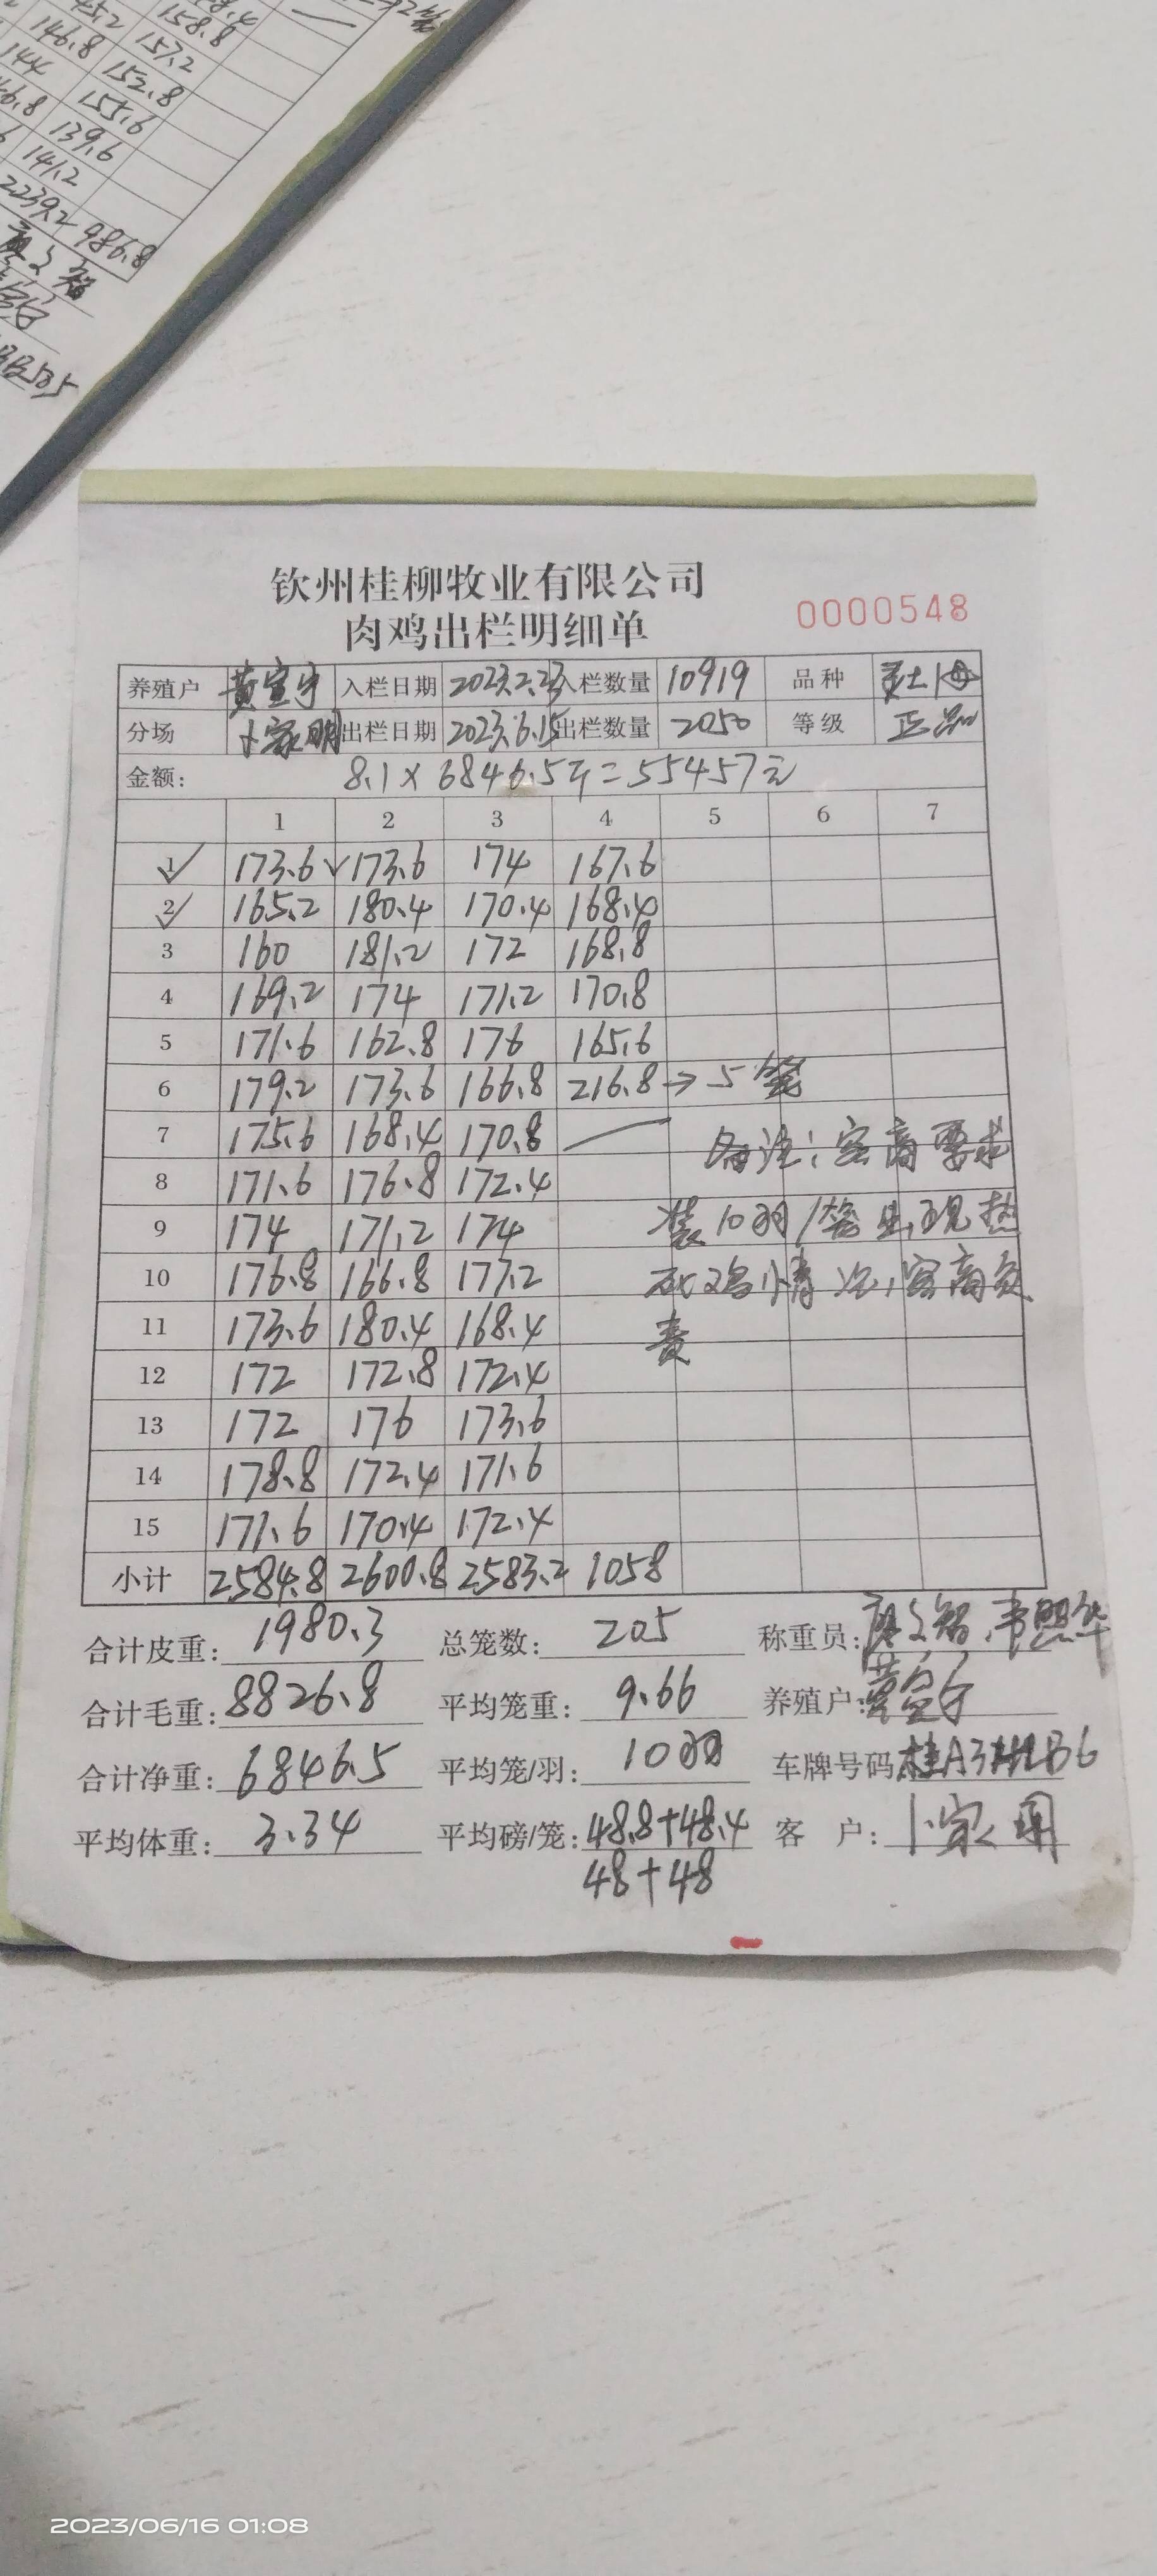 158.8
146.8 157.2
144 152.8
155.6
139.6
141.2
2239.2 986.8
钦州桂柳牧业有限公司
肉鸡出栏明细单
0000548
养殖户 黄宣宇 入栏日期 2023.2.23 入栏数量 10919 品种 土1母
分场 卜家明 出栏日期 2023.6.15 出栏数量 2050 等级 正品
金额: 8.1×6846.5斤=55457元
1 2 3 4 5 6 7
1 173.6 173.6 174 167.6
2 165.2 180.4 170.4 168.4
3 160 181.2 172 168.8
4 169.2 174 171.2 170.8
5 171.6 162.8 176 165.6
6 179.2 173.6 166.8 216.8→5笼
7 175.6 168.4 170.8 备注:客商要求
8 171.6 176.8 172.4
9 174 171.2 174 装10羽/笼出现热
10 176.8 166.8 177.2 死鸡情况,客商负
11 173.6 180.4 168.4 责
12 172 172.8 172.4
13 172 176 173.6
14 178.8 172.4 171.6
15 171.6 170.4 172.4
小计 2584.8 2600.8 2583.2 1058
合计皮重: 1980.3 总笼数: 205 称重员:
合计毛重: 8826.8 平均笼重: 9.66 养殖户: 黄宣宇
合计净重: 6846.5 平均笼/羽: 10羽 车牌号码
平均体重: 3.34 平均磅/笼: 48.8+48.4 客 户: 卜家明
48+48
2023/06/16 01:08